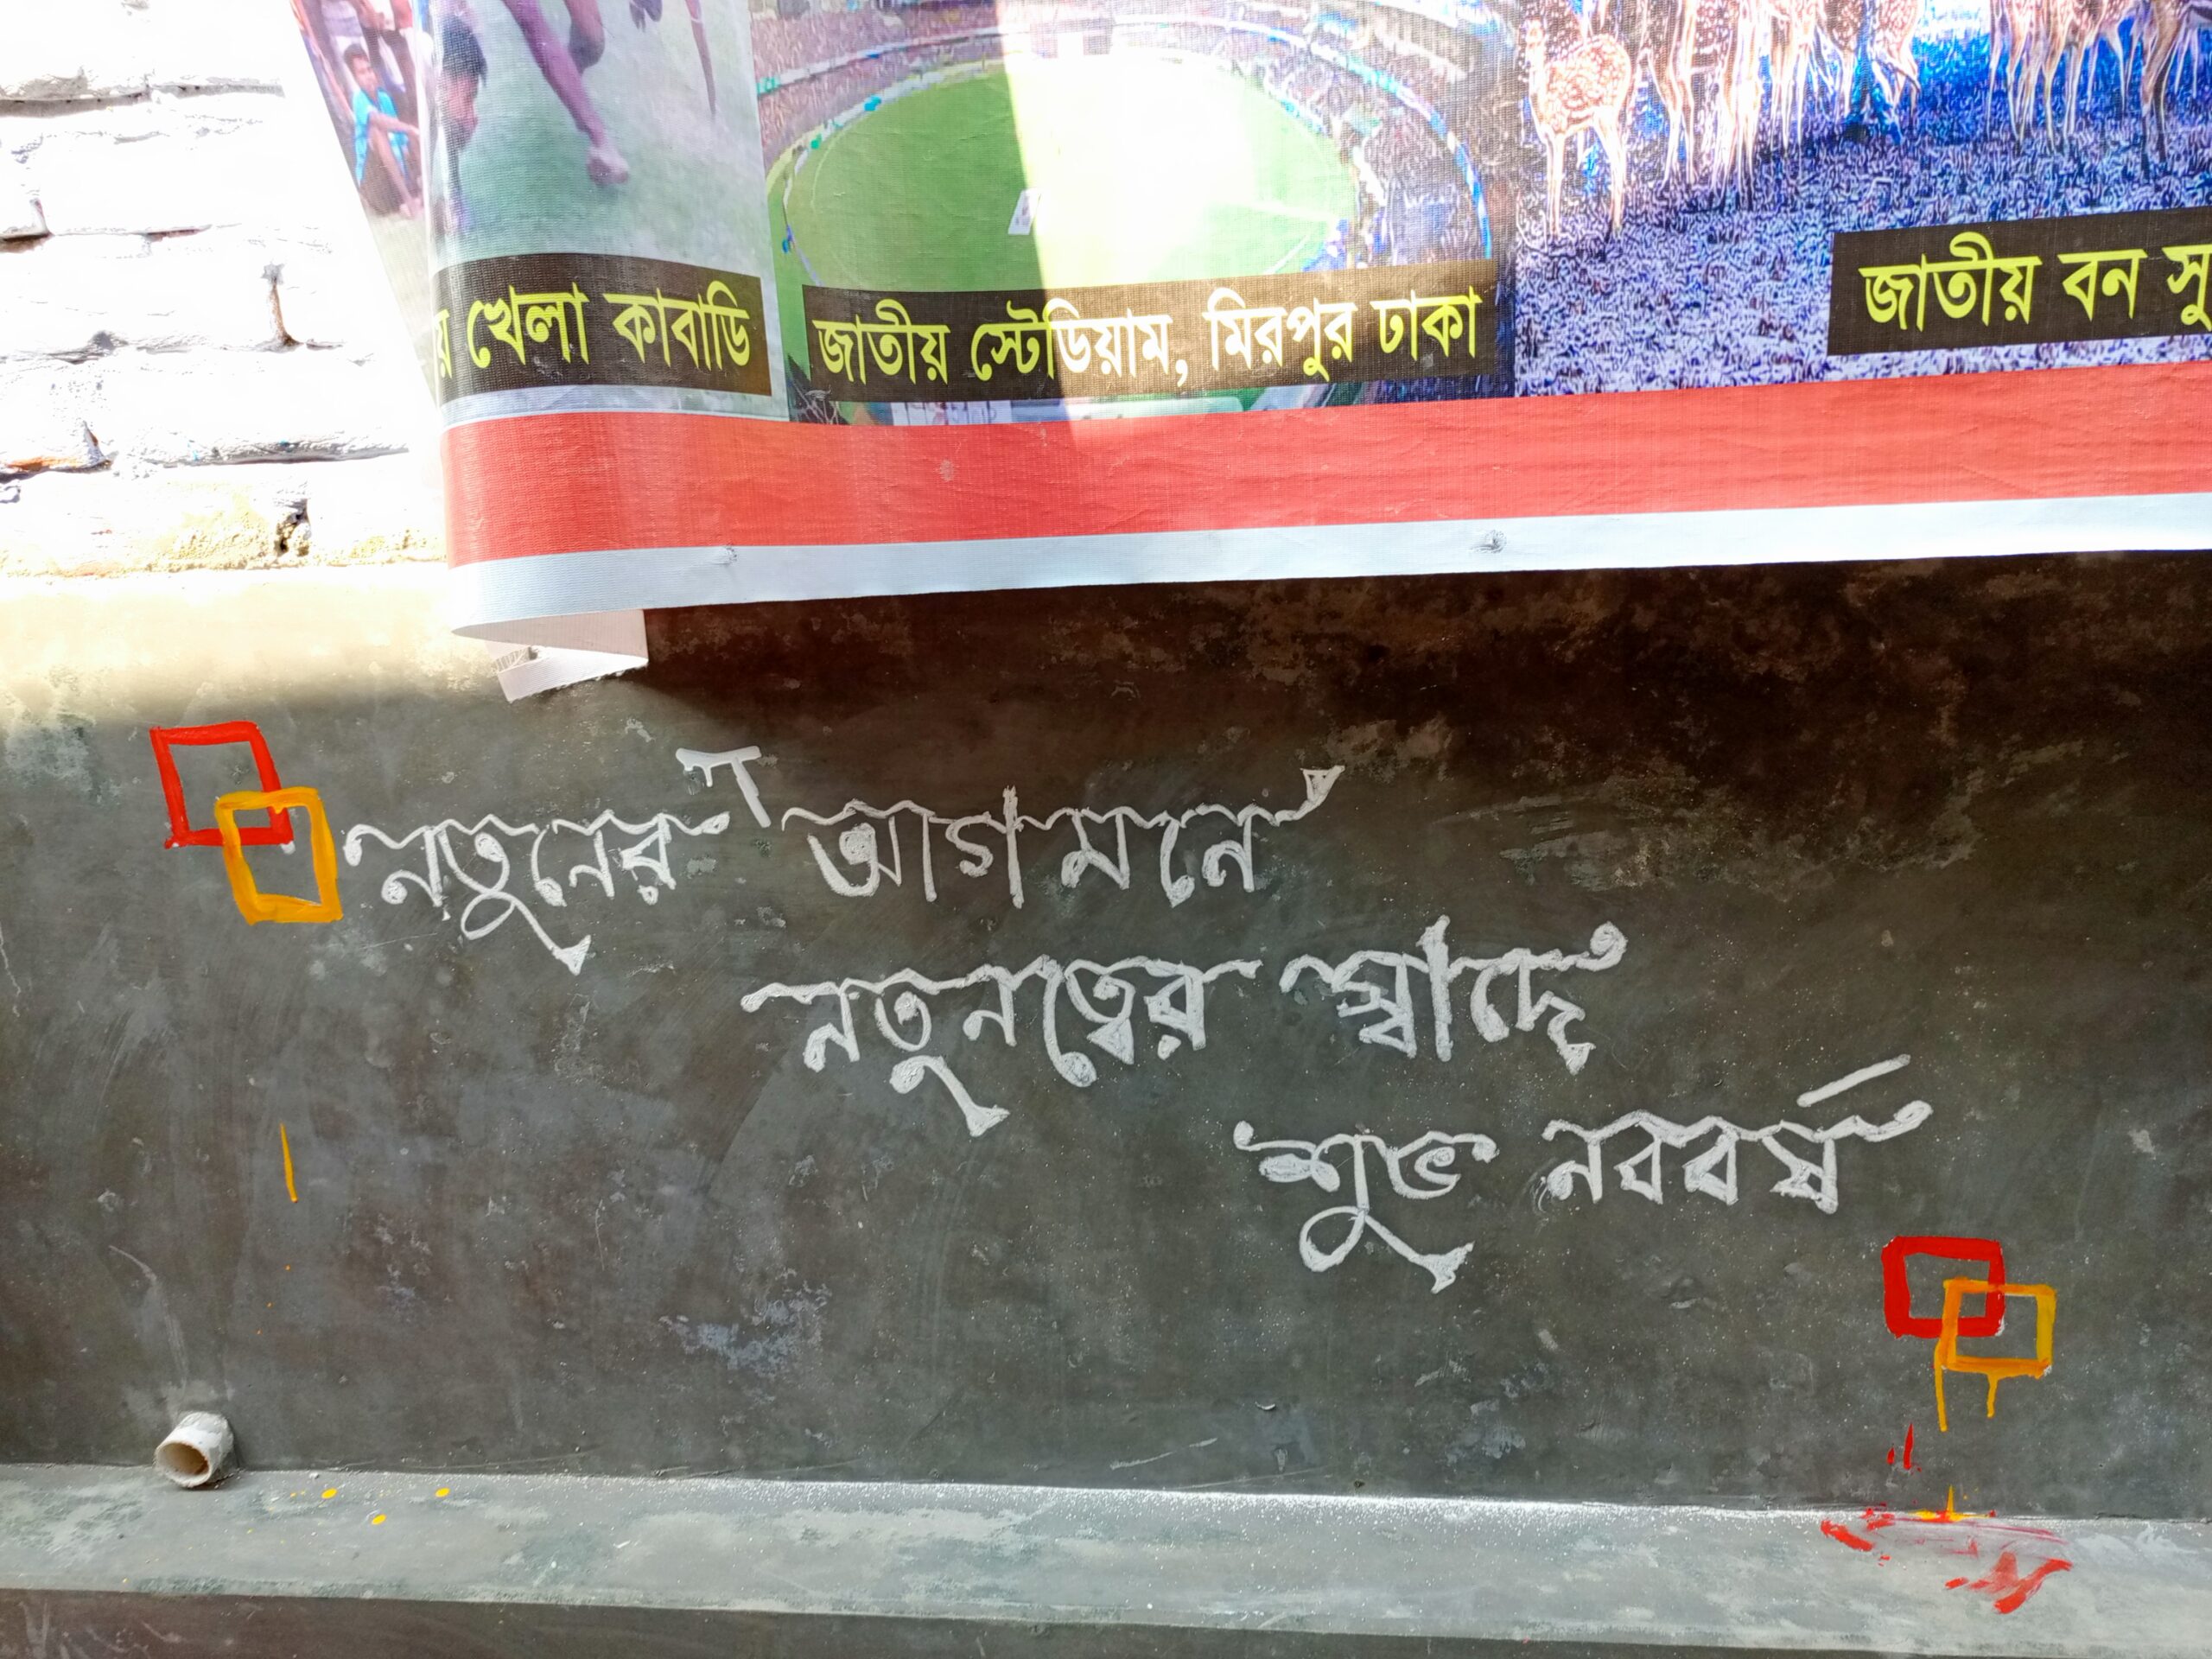 খেলা কাবাডি
জাতীয় স্টেডিয়াম, মিরপুর ঢাকা
জাতীয় বন
নতুনের আগমনে
নতুনত্বের স্বাদে
শুভ নববর্ষ